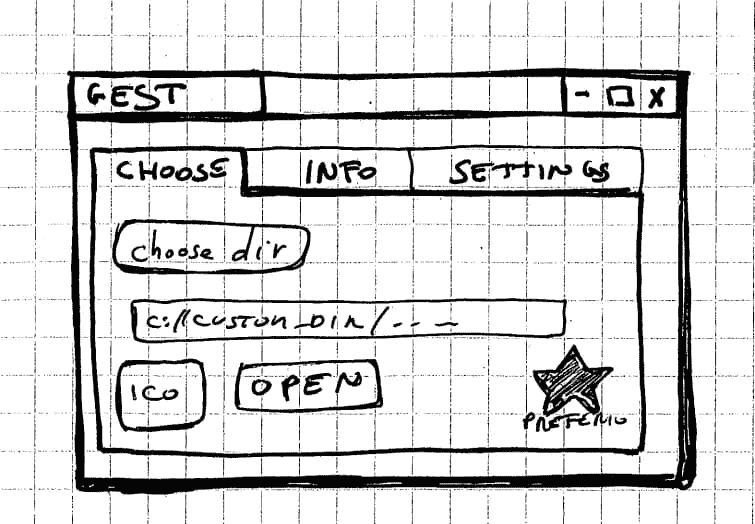 GEST - X
CHOOSE INFO SETTINGS
choose dir
C://CUSTOM_DIR/...
ICO OPEN